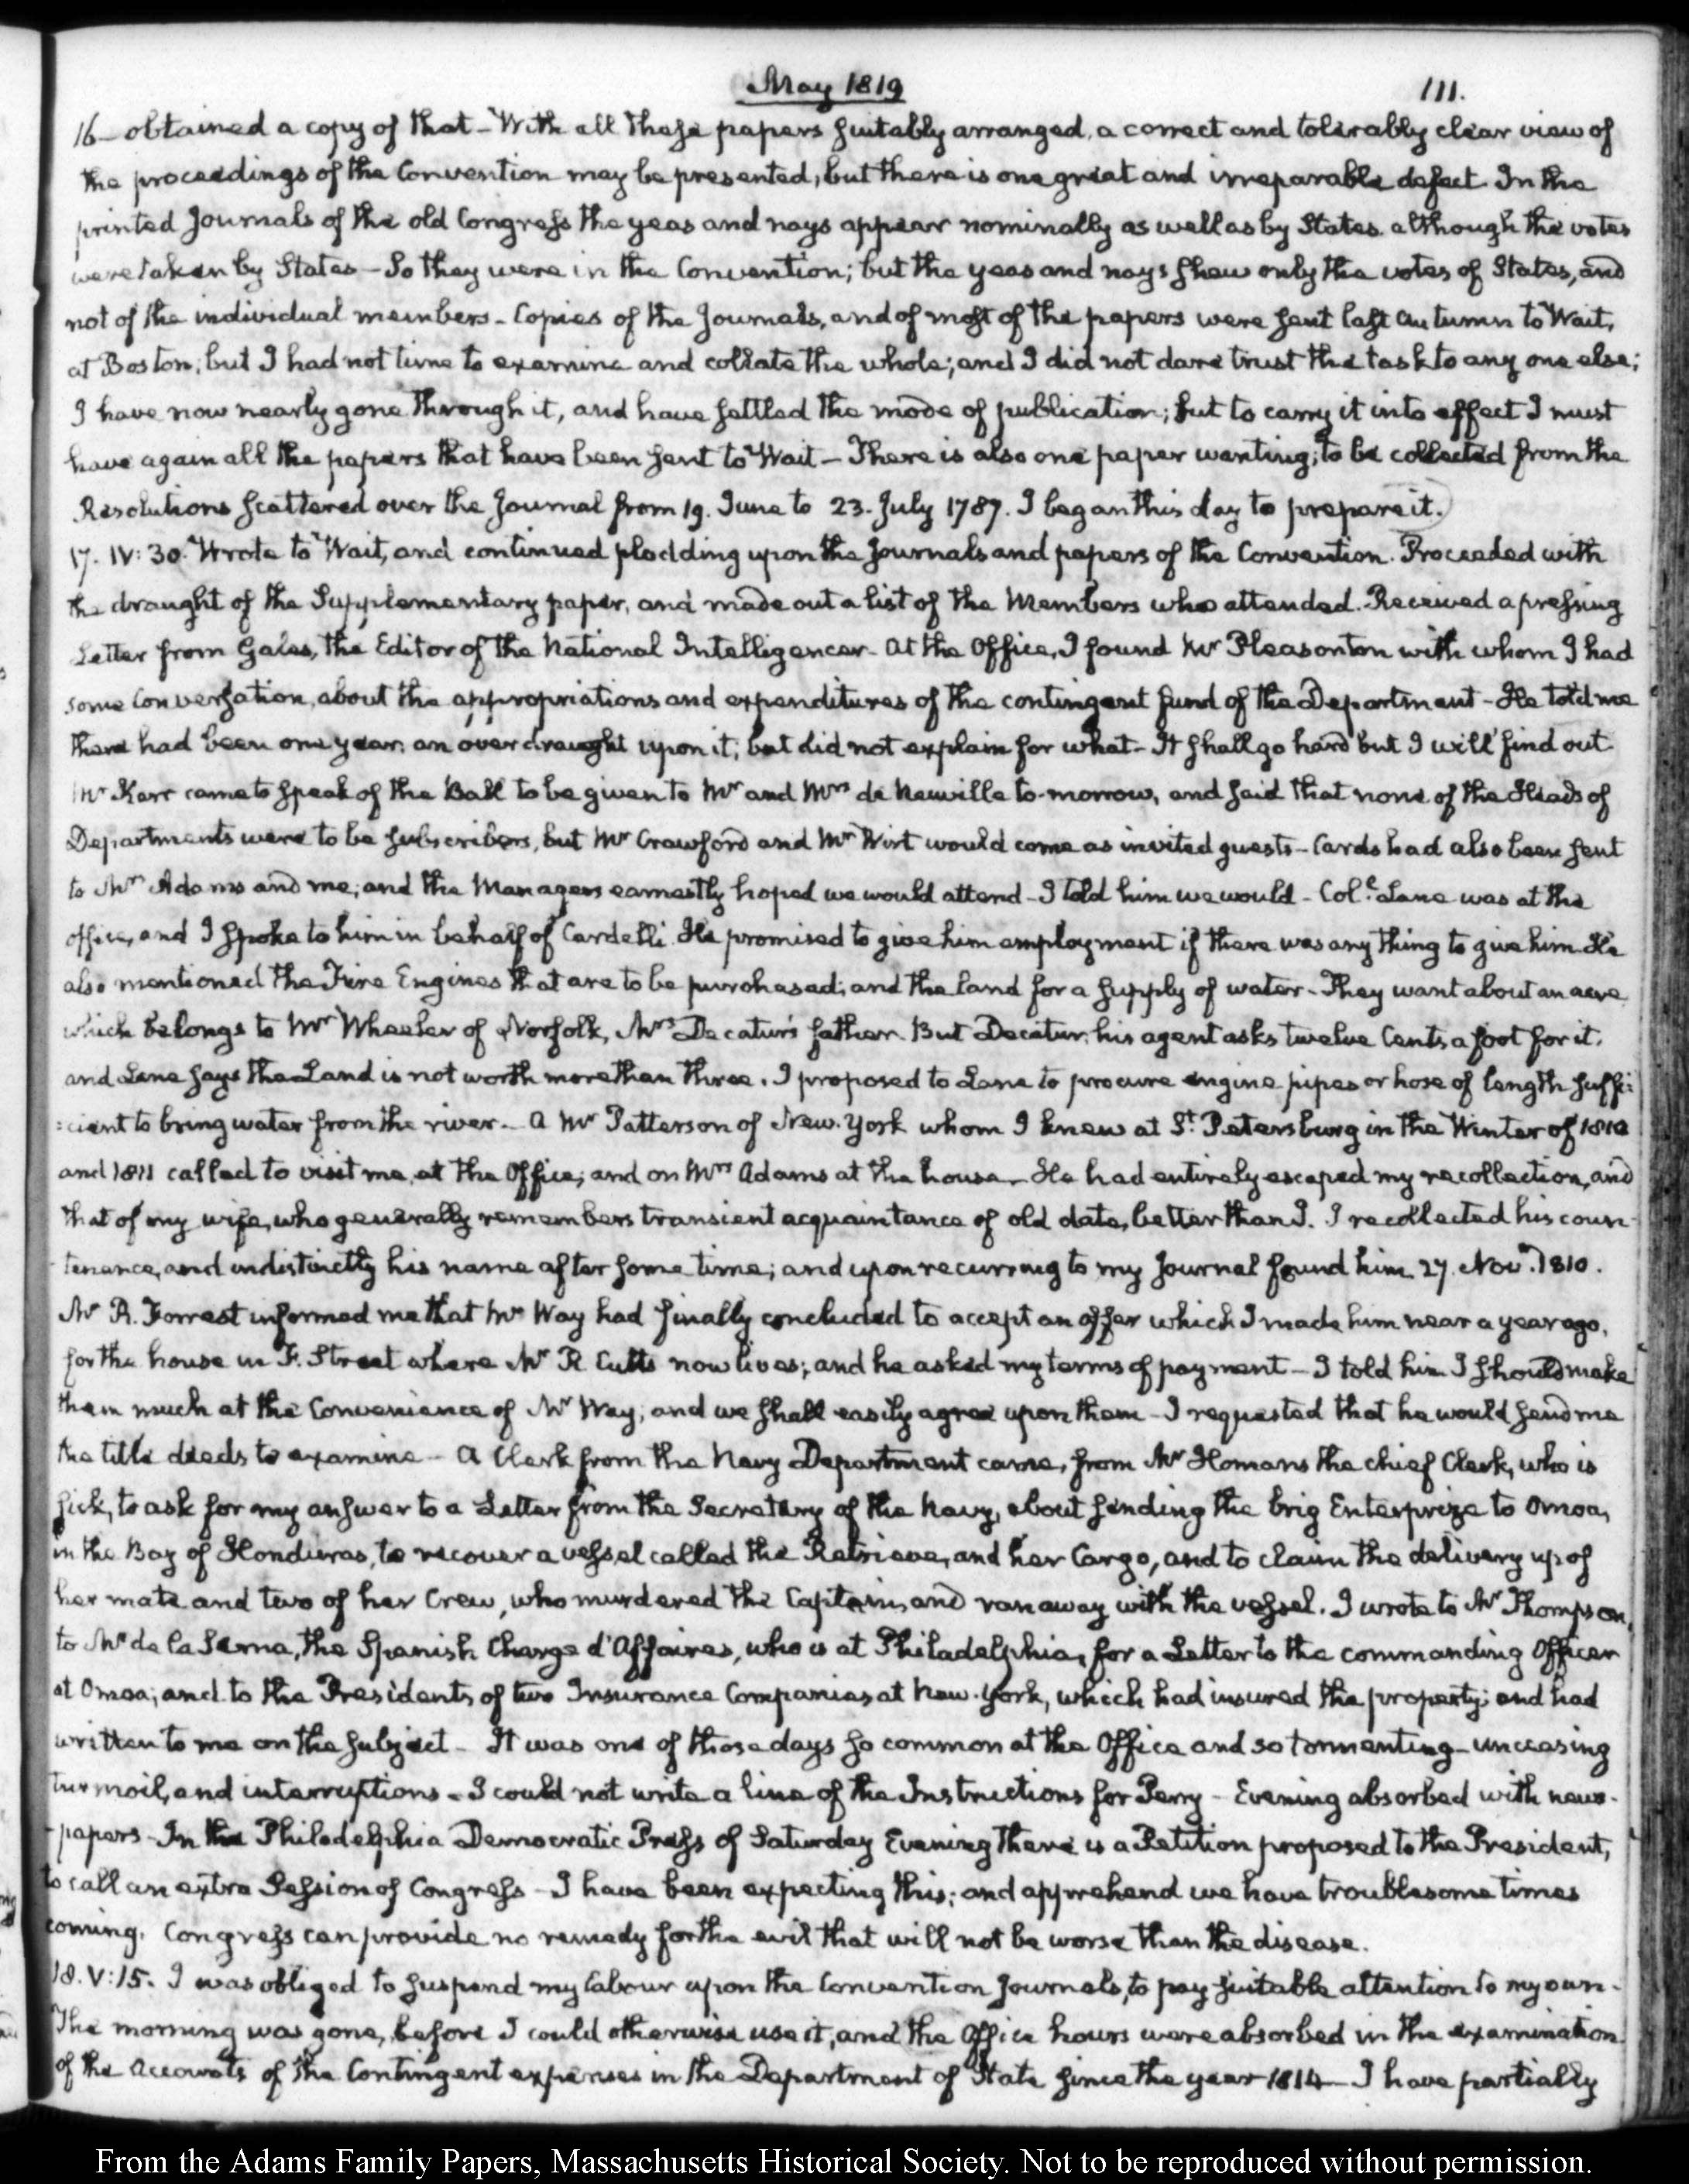 May 1819
111.
16 — obtained a copy of that — With all these papers suitably arranged, a correct and tolerably clear view of
the proceedings of the Convention may be presented, but there is one great and irreparable defect. In the
printed Journals of the old Congress the yeas and nays appear nominally as well as by States, although the votes
were taken by States — So they were in the Convention; but the yeas and nays shew only the votes of States, and
not of the individual members — Copies of the Journals, and of most of the papers were sent last Autumn to Wait,
at Boston; but I had not time to examine and collate the whole; and I did not dare trust the task to any one else;
I have now nearly gone through it, and have settled the mode of publication; but to carry it into effect I must
have again all the papers that have been sent to Wait — There is also one paper wanting; to be collected from the
Resolutions scattered over the Journal from 19. June to 23. July 1787. I began this day to prepare it.
17. IV:30. Wrote to Wait, and continued plodding upon the Journals and papers of the Convention. Proceeded with
the draught of the Supplementary paper, and made out a list of the Members who attended. Received a pressing
Letter from Gales, the Editor of the National Intelligencer — At the Office, I found Mr Pleasonton with whom I had
some Conversation, about the appropriations and expenditures of the contingent fund of the Department — He told me
there had been one year, an over draught upon it; but did not explain for what — It shall go hard but I will find out
Mr Karr came to speak of the Ball to be given to Mr and Mrs de Neuville to-morrow, and said that none of the Heads of
Departments were to be subscribers, but Mr Crawford and Mr Wirt would come as invited guests — Cards had also been sent
to Mrs Adams and me; and the Managers earnestly hoped we would attend — I told him we would — Coll. Lane was at the
office, and I spoke to him in behalf of Cardelli. He promised to give him employment if there was any thing to give him. He
also mentioned the Fire Engines that are to be purchased; and the land for a supply of water — They want about an acre
which belongs to Mr Wheeler of Norfolk, Mrs Decatur's father. But Decatur, his agent asks twelve Cents a foot for it,
and Lane says the Land is not worth more than three. I proposed to Lane to procure engine pipes or hose of length suffi:
:cient to bring water from the river — A Mr Patterson of New-York whom I knew at St. Petersburg in the Winter of 1810
and 1811 called to visit me, at the Office; and on Mrs Adams at the house — He had entirely escaped my recollection, and
that of my wife, who generally remembers transient acquaintance of old date, better than I. I recollected his coun-
-tenance, and indistinctly his name after some time; and upon recurring to my Journal found him 27. Novr. 1810.
Mr R. Forrest informed me that Mr Way had finally concluded to accept an offer which I made him near a year ago,
for the house in F. Street where Mr R Cutts now lives; and he asked my terms of payment — I told him I should make
them much at the Convenience of Mr Way; and we shall easily agree upon them — I requested that he would send me
the title deeds to examine — A Clerk from the Navy Department came, from Mr Homans the chief Clerk, who is
sick, to ask for my answer to a Letter from the Secretary of the Navy, about sending the brig Enterprize to Omoa,
in the Bay of Honduras, to recover a vessel called the Retrieve, and her Cargo, and to claim the delivery up of
her mate and two of her Crew, who murdered the Captain, and ran away with the vessel. I wrote to Mr Thompson,
to Mr de la Serna, the Spanish Charge d'Affaires, who is at Philadelphia, for a Letter to the commanding Officer
at Omoa; and to the Presidents of two Insurance Companies at New-York, which had insured the property; and had
written to me on the subject — It was one of those days so common at the Office and so tormenting — unceasing
turmoil, and interruptions — I could not write a line of the Instructions for Perry — Evening absorbed with news-
-papers — In the Philadelphia Democratic Press of Saturday Evening there is a Petition proposed to the President,
to call an extra Session of Congress — I have been expecting this; and apprehend we have troublesome times
coming. Congress can provide no remedy for the evil that will not be worse than the disease.
18. V:15. I was obliged to suspend my labour upon the Convention Journals, to pay suitable attention to my own —
The morning was gone, before I could otherwise use it, and the Office hours were absorbed in the examination
of the Accounts of the Contingent expenses in the Department of State since the year 1814 — I have partially
From the Adams Family Papers, Massachusetts Historical Society. Not to be reproduced without permission.